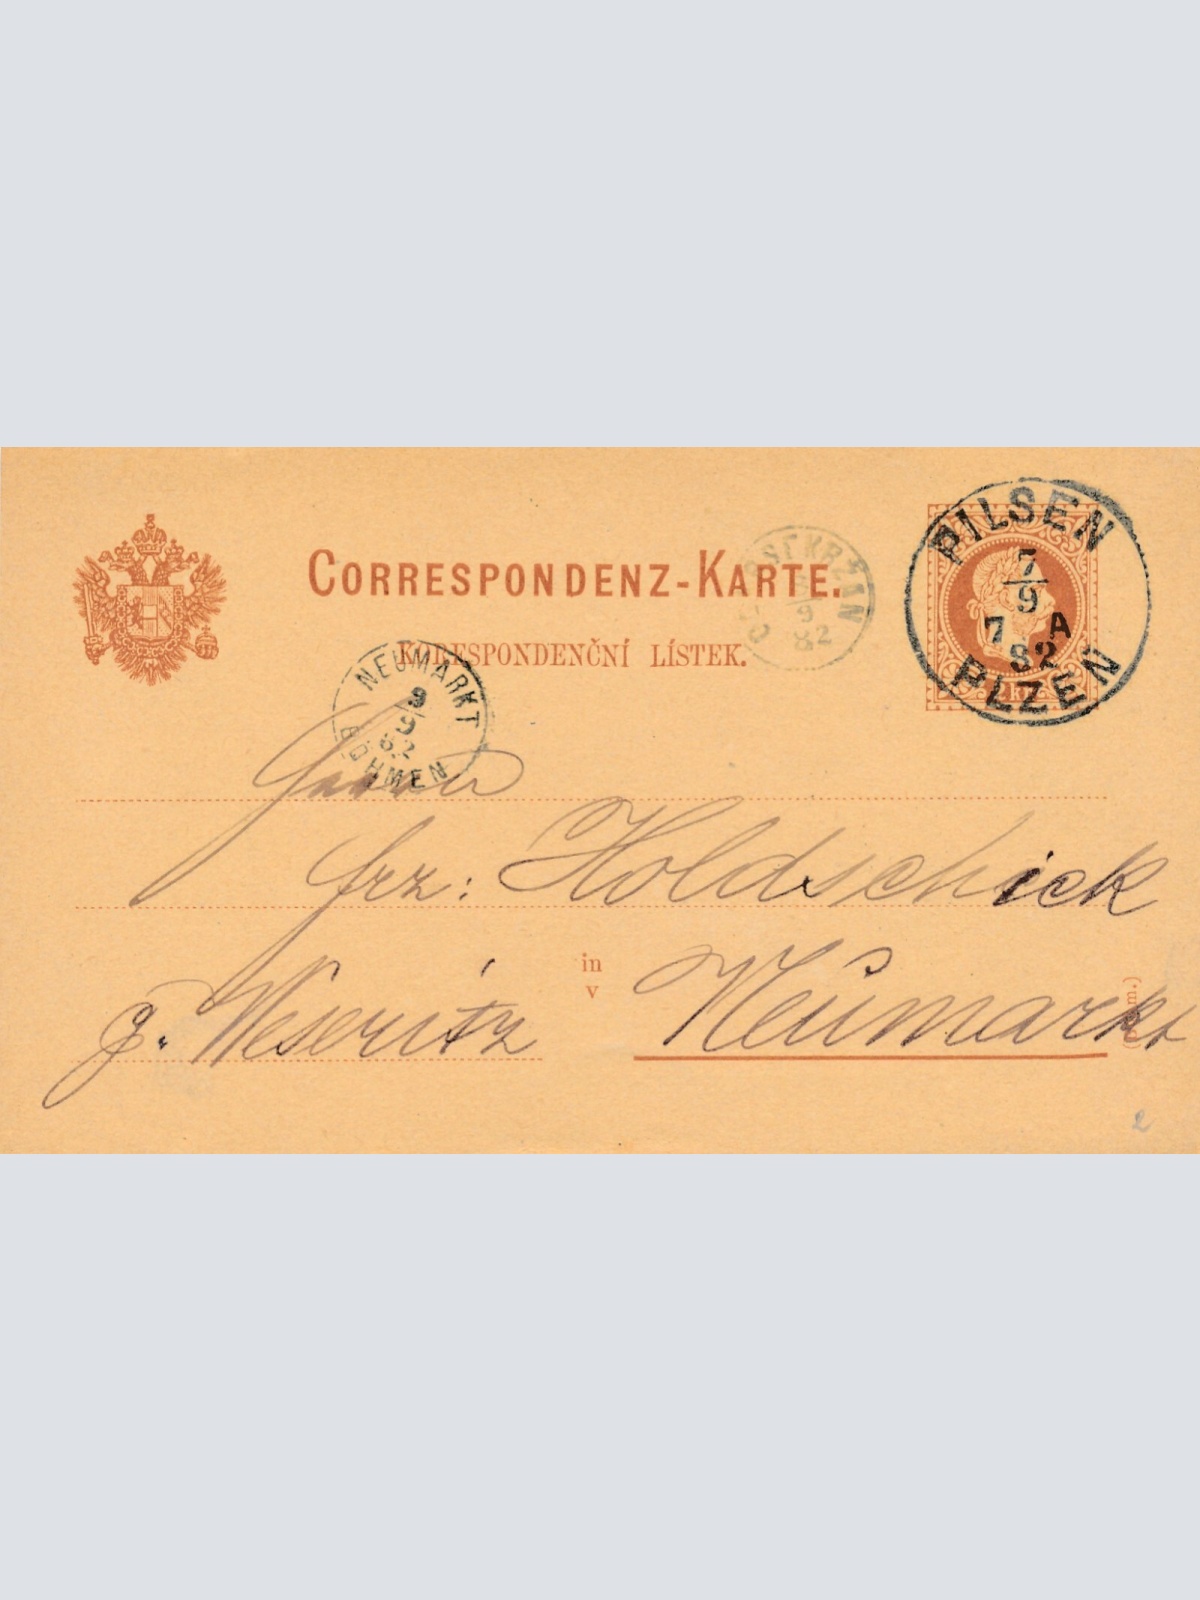 CORRESPONDENZ-KARTE.
KORESPONDENČNÍ LÍSTEK.
PILSEN
7/9
7 A
82
PLZEN
2 kr.
NEUMARKT
9
82
BÖHMEN
9
82
Herrn
frz: Holdschick
in
v
g. Weseritz
Neumarkt